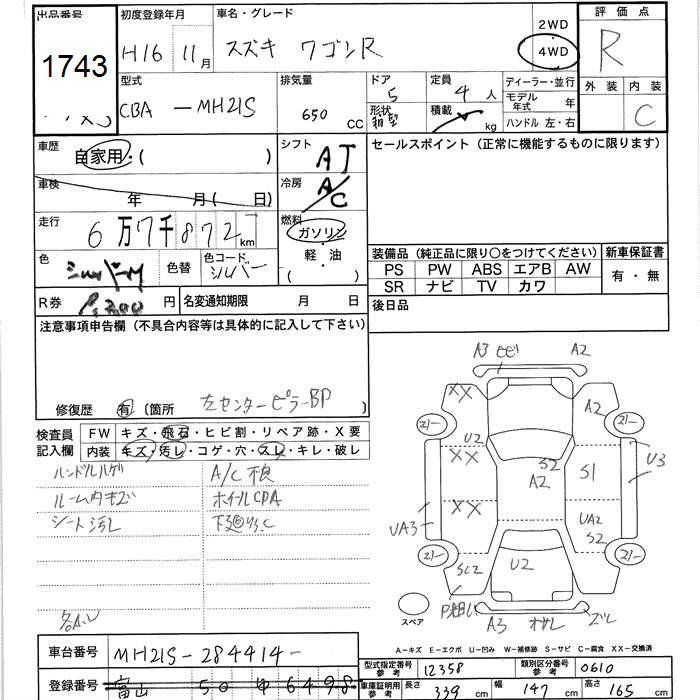 出品番号 初度登録年月 車名・グレード 2WD 評価点
1743 H16 11月 スズキ ワゴンR 4WD R
型式 排気量 ドア 定員 ディーラー・並行 外装 内装
CBA -MH21S 650 CC 5 4人 モデル年式 年 C
形状 積載 kg ハンドル 左・右
車歴 自家用・( ) シフト AT セールスポイント (正常に機能するものに限ります)
車検 年 月( 日) 冷房 A/C
走行 6万7千872 km 燃料 ガソリン・軽・油 ( )
色 シルバーM 色替 色コード シルバー
装備品 (純正品に限り○をつけてください) 新車保証書
PS PW ABS エアB AW 有・無
SR ナビ TV カワ
R券 円 名変通知期限 月 日 後日品
注意事項申告欄 (不具合内容等は具体的に記入して下さい)
修復歴 有 (箇所 左センターピラーBP )
検査員記入欄 FW キズ・飛石・ヒビ割・リペア跡・X要
内装 キズ・汚レ・コゲ・穴・スレ・キレ・破レ
ハンドルハゲ A/C不良
ルーム内キズ ホイルCDA
シート汚レ
A3 ヒビ A2
XX A2
21- 21-
U2
XX S2 S1 U3
A2
XX UA2
UA3 S2
21- 21-
SC2 U2
P粗い
スペア A3 ズレ
A-キズ E-エクボ U-凹み W-補修跡 S-サビ C-腐食 XX-交換済
車台番号 MH21S-284414-
型式指定番号 参考 12358 類別区分番号 参考 0610
登録番号 富山 50 ゆ 6498
車庫証明用 参考 長さ 339 cm 幅 147 cm 高さ 165 cm